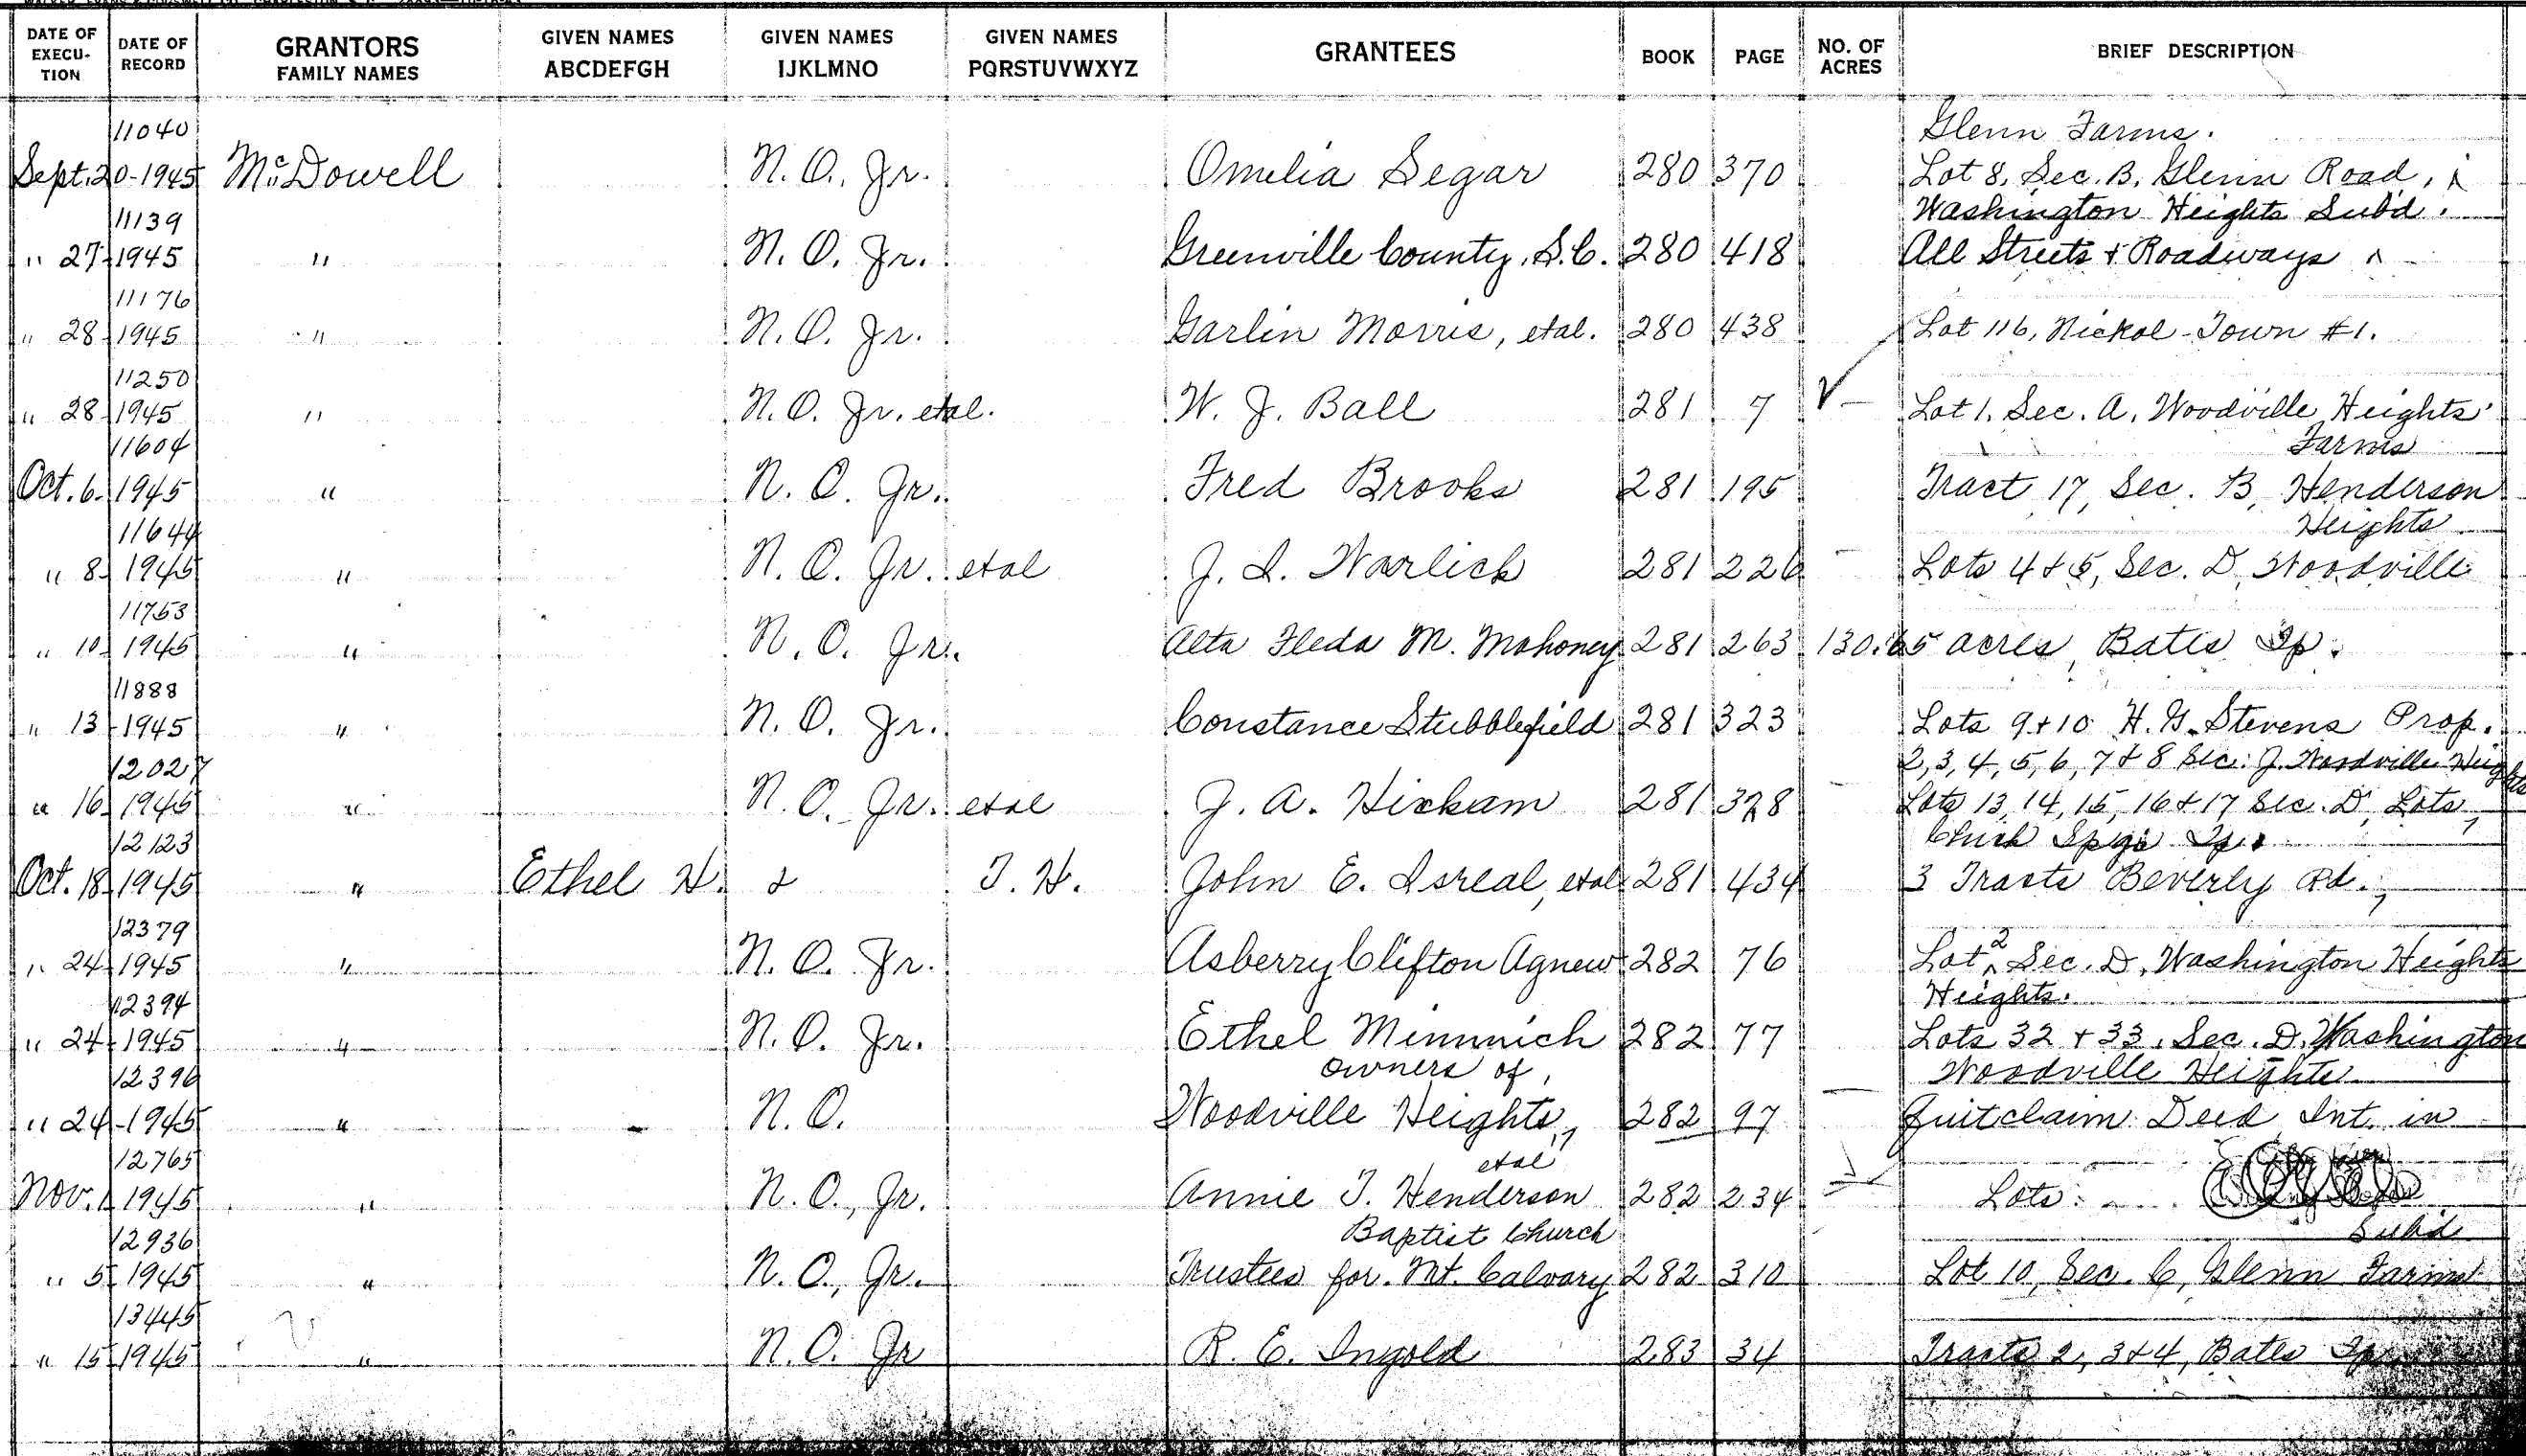 DATE OF EXECU- TION DATE OF RECORD GRANTORS FAMILY NAMES GIVEN NAMES ABCDEFGH GIVEN NAMES IJKLMNO GIVEN NAMES PQRSTUVWXYZ GRANTEES BOOK PAGE NO. OF ACRES BRIEF DESCRIPTION
11040 Glenn Farms.
Sept. 20-1945 McDowell N. O. Jr. Omelia Segar 280 370 Lot 8, Sec. B, Glenn Road,
11139 Washington Heights Subd.
" 27-1945 " N. O. Jr. Greenville County, S.C. 280 418 All Streets + Roadways
11176
" 28-1945 " N. O. Jr. Garlin Morris, etal. 280 438 Lot 116, Nickol-Town #1.
11250
" 28-1945 " N. O. Jr. etal. W. J. Ball 281 7 Lot 1, Sec. A, Woodville Heights
11604 Farms
Oct. 6-1945 " N. O. Jr. Fred Brooks 281 195 Tract 17, Sec. B, Henderson
11644 Heights
" 8-1945 " N. O. Jr. etal J. I. Warlick 281 226 Lots 4 + 5, Sec. D, Woodville
11753
" 10-1945 " N. O. Jr. Alta Fleda M. Mahoney 281 263 130.65 acres, Bates Tp.
11888
" 13-1945 " N. O. Jr. Constance Stubblefield 281 323 Lots 9 + 10 H. G. Stevens Prop.
12027 2, 3, 4, 5, 6, 7 + 8 Sec. J. Woodville Heights
" 16-1945 " N. O. Jr. etal J. A. Hickam 281 328 Lots 13, 14, 15, 16 + 17 Sec. D, Lots
12123 Chick Spgs Tp.
Oct. 18-1945 " Ethel H. & T. H. John E. Isreal, etal 281 434 3 Tracts Beverly Rd.,
12379
" 24-1945 " N. O. Jr. Asberry Clifton Agnew 282 76 Lot 2 Sec. D, Washington Heights
12394 Heights.
" 24-1945 " N. O. Jr. Ethel Minnich 282 77 Lots 32 + 33, Sec. D, Washington
12396 Owners of, Woodville Heights
" 24-1945 " N. O. Woodville Heights, 282 97 Quitclaim Deed Int. in
12765 etal
Nov. 1-1945 " N. O., Jr. Annie T. Henderson 282 234 Lots
12936 Baptist Church Subd
" 5-1945 " N. O., Jr. Trustees for Mt. Calvary 282 310 Lot 10, Sec. C, Glenn Farms
13445
" 15-1945 " N. O. Jr R. E. Ingold 283 34 Tracts 2, 3 + 4, Bates Tp.